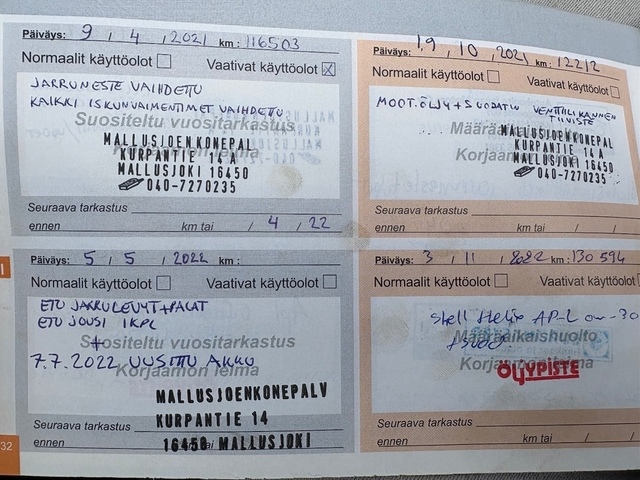 Päiväys: 9 / 4 / 2021 km: 116503
Normaalit käyttöolot Vaativat käyttöolot
JARRUNESTE VAIHDETTU
KAIKKI ISKUNVAIMENTIMET VAIHDETTU
Suositeltu vuositarkastus
MALLUSJOENKONEPAL
KURPANTIE 14 A
MALLUSJOKI 16450
040-7270235
Seuraava tarkastus
ennen km tai / 4 / 22
Päiväys: 19, 10, 2021 km: 12212
Normaalit käyttöolot Vaativat käyttöolot
MOOT.ÖLJY + SUODATIN VENTTIILIKANNEN
TIIVISTE
MALLUSJOENKONEPAL
KURPANTIE 14 A
Korjaamon MALLUSJOKI 16450
040-7270235
Seuraava tarkastus
ennen km tai / /
Päiväys: 5 / 5 / 2022 km:
Normaalit käyttöolot Vaativat käyttöolot
ETU JARRULEVYT+PALAT
ETU JOUSI 1KPL
+
Suositeltu vuositarkastus
7.7.2022 UUSITTU AKKU
Korjaamon leima
MALLUSJOENKONEPALV
KURPANTIE 14
16450 MALLUSJOKI
Seuraava tarkastus
ennen tai
32
Päiväys: 3 / 11 / 2022 km: 130 594
Normaalit käyttöolot Vaativat käyttöolot
Shell Helix AP-L 0W-30
Määräaikaishuolto
Korjaamon leima
ÖLJYPISTE
Seuraava tarkastus
ennen km tai / /